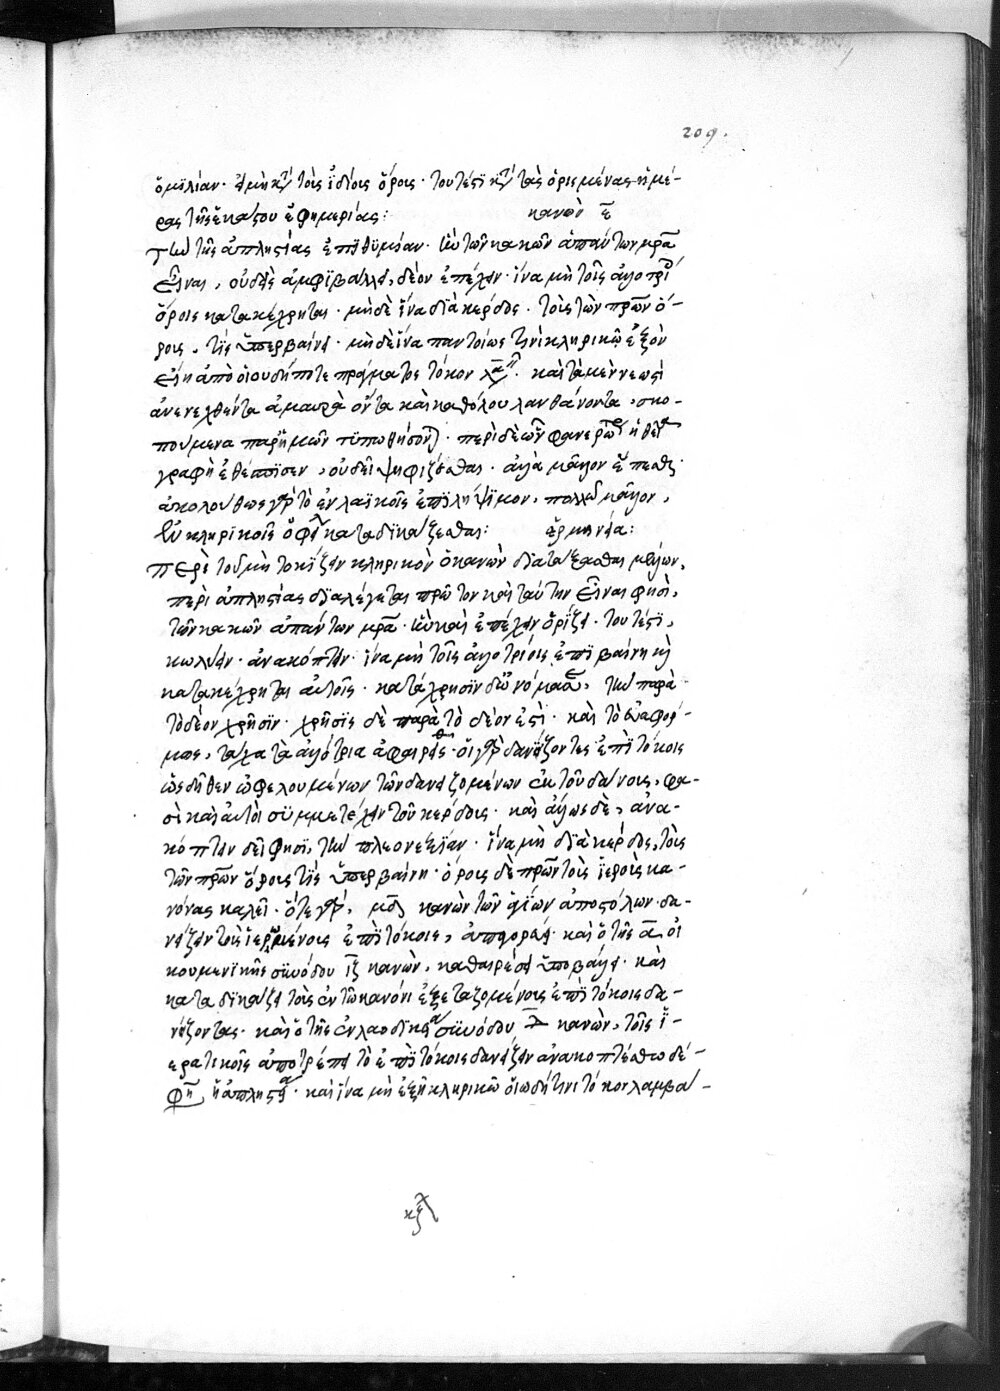 209.
ὁμιλίαν· εἰ μὴ κατὰ τοῖς ἰδίοις ὅροις· τουτέστι κατὰ τὰς ὁρισμένας ἡμέ-
ρας τῆς ἑκάστου ἐφημερίας: κανὼν ε̅
Τὴν τῆς ἀπληστίας ἐπιθυμίαν· ἣν τῶν κακῶν ἁπάντων μρ̅α
εἶναι, οὐδεὶς ἀμφιβάλλει, δέον ἐπέχειν· ἵνα μὴ τοῖς ἀλλοτρί
ὅροις κατακέχρηται· μηδὲ ἵνα διὰ κέρδος· τοὺς τῶν πρων ὅ-
ρους, τὶς ὑπερβαίνει· μηδὲ ἵνα παντοίως τινὶ κληρικῷ ἐξὸν
εἴη ἀπὸ οἱουδήποτε πράγματος τόκον λα· καὶ τὰ μὲν νεωστὶ
ἀνενεχθέντα ἀμαυρὰ ὄντα καὶ καθόλου λανθάνοντα, σκο-
πούμενα παρ' ἡμῶν τυπωθήσον· περὶ δὲ ὧν φανερω ἡ θεί
γραφὴ ἐθέσπισεν, οὐ δεῖ ψηφίζεσθαι· ἀλλὰ μᾶλλον ἕπεσθαι·
ἀκολούθως γὰρ τὸ ἐν λαϊκοῖς ἐπιλήψιμον, πολλῷ μᾶλλον,
ἐν κληρικοῖς ὀφεί καταδικάζεσθαι: ἑρμηνεία:
Περὶ τοῦ μὴ τοκίζειν κληρικὸν ὁ κανὼν διατάξασθαι μέλλων,
περὶ ἀπληστίας διαλέγεται πρῶτον καὶ ταύτην εἶναι φησὶ,
τῶν κακῶν ἁπάντων μρ̅α· ἣν καὶ ἐπέχειν ὁρίζει· τουτέστι,
κωλύειν· ἀνακόπτειν· ἵνα μὴ τοῖς ἀλλοτρίοις ἐπιβαίνῃ καὶ
κατακέχρηται αὐτοῖς· κατάχρησιν δὲ ὀνομάσας, τὴν παρὰ
τὸ δέον χρῆσιν· χρῆσις δὲ παρὰ τὸ δέον ἐστὶ· καὶ τὸ ἐξ ἀφορ-
μῆς, τάχα τὰ ἀλλότρια ἀφαιρεῖσθαι· οἱ γὰρ δανείζοντες ἐπὶ τόκοις
ὡς δῆθεν ὠφελουμένων τῶν δανειζομένων ἐκ τοῦ δάνους, φα-
σὶ καὶ αὐτοὶ συμμετέχειν τοῦ κέρδους· καὶ ἄλλως δὲ, ἀνα-
κόπτειν δεῖ φησι, τὴν πλεονεξίαν· ἵνα μὴ διὰ κέρδος, τοὺς
τῶν πρων ὅρους τὶς ὑπερβαίνῃ· ὅρους δὲ πρων τοὺς ἱεροὺς κα-
νόνας καλεῖ· ὅτε γὰρ, μδ̅ κανὼν τῶν ἁγίων ἀποστόλων, δα-
νείζειν τοὺς ἱερωμένους ἐπὶ τόκοις, ἀπαγορεύει· καὶ ὁ τῆς α̅, οἰ
κουμενικῆς συνόδου ιζ̅ κανὼν, καθαιρέσει ὑποβάλλει· καὶ
καταδικάζει τοὺς ἐν τῷ κανόνι ἐξεταζομένους ἐπὶ τόκοις δα-
νείζοντας· καὶ ὁ τῆς ἐν λαοδικείᾳ συνόδου δ̅ κανὼν, τοὺς ἱ-
ερατικοὺς ἀποτρέπει τὸ ἐπὶ τόκοις δανείζειν ἀνακοπτέσθω δέ-
φη ἡ ἀπληστία· καὶ ἵνα μὴ ἐξῇ κληρικῷ οἱωδήτινι τόκον λαμβά-